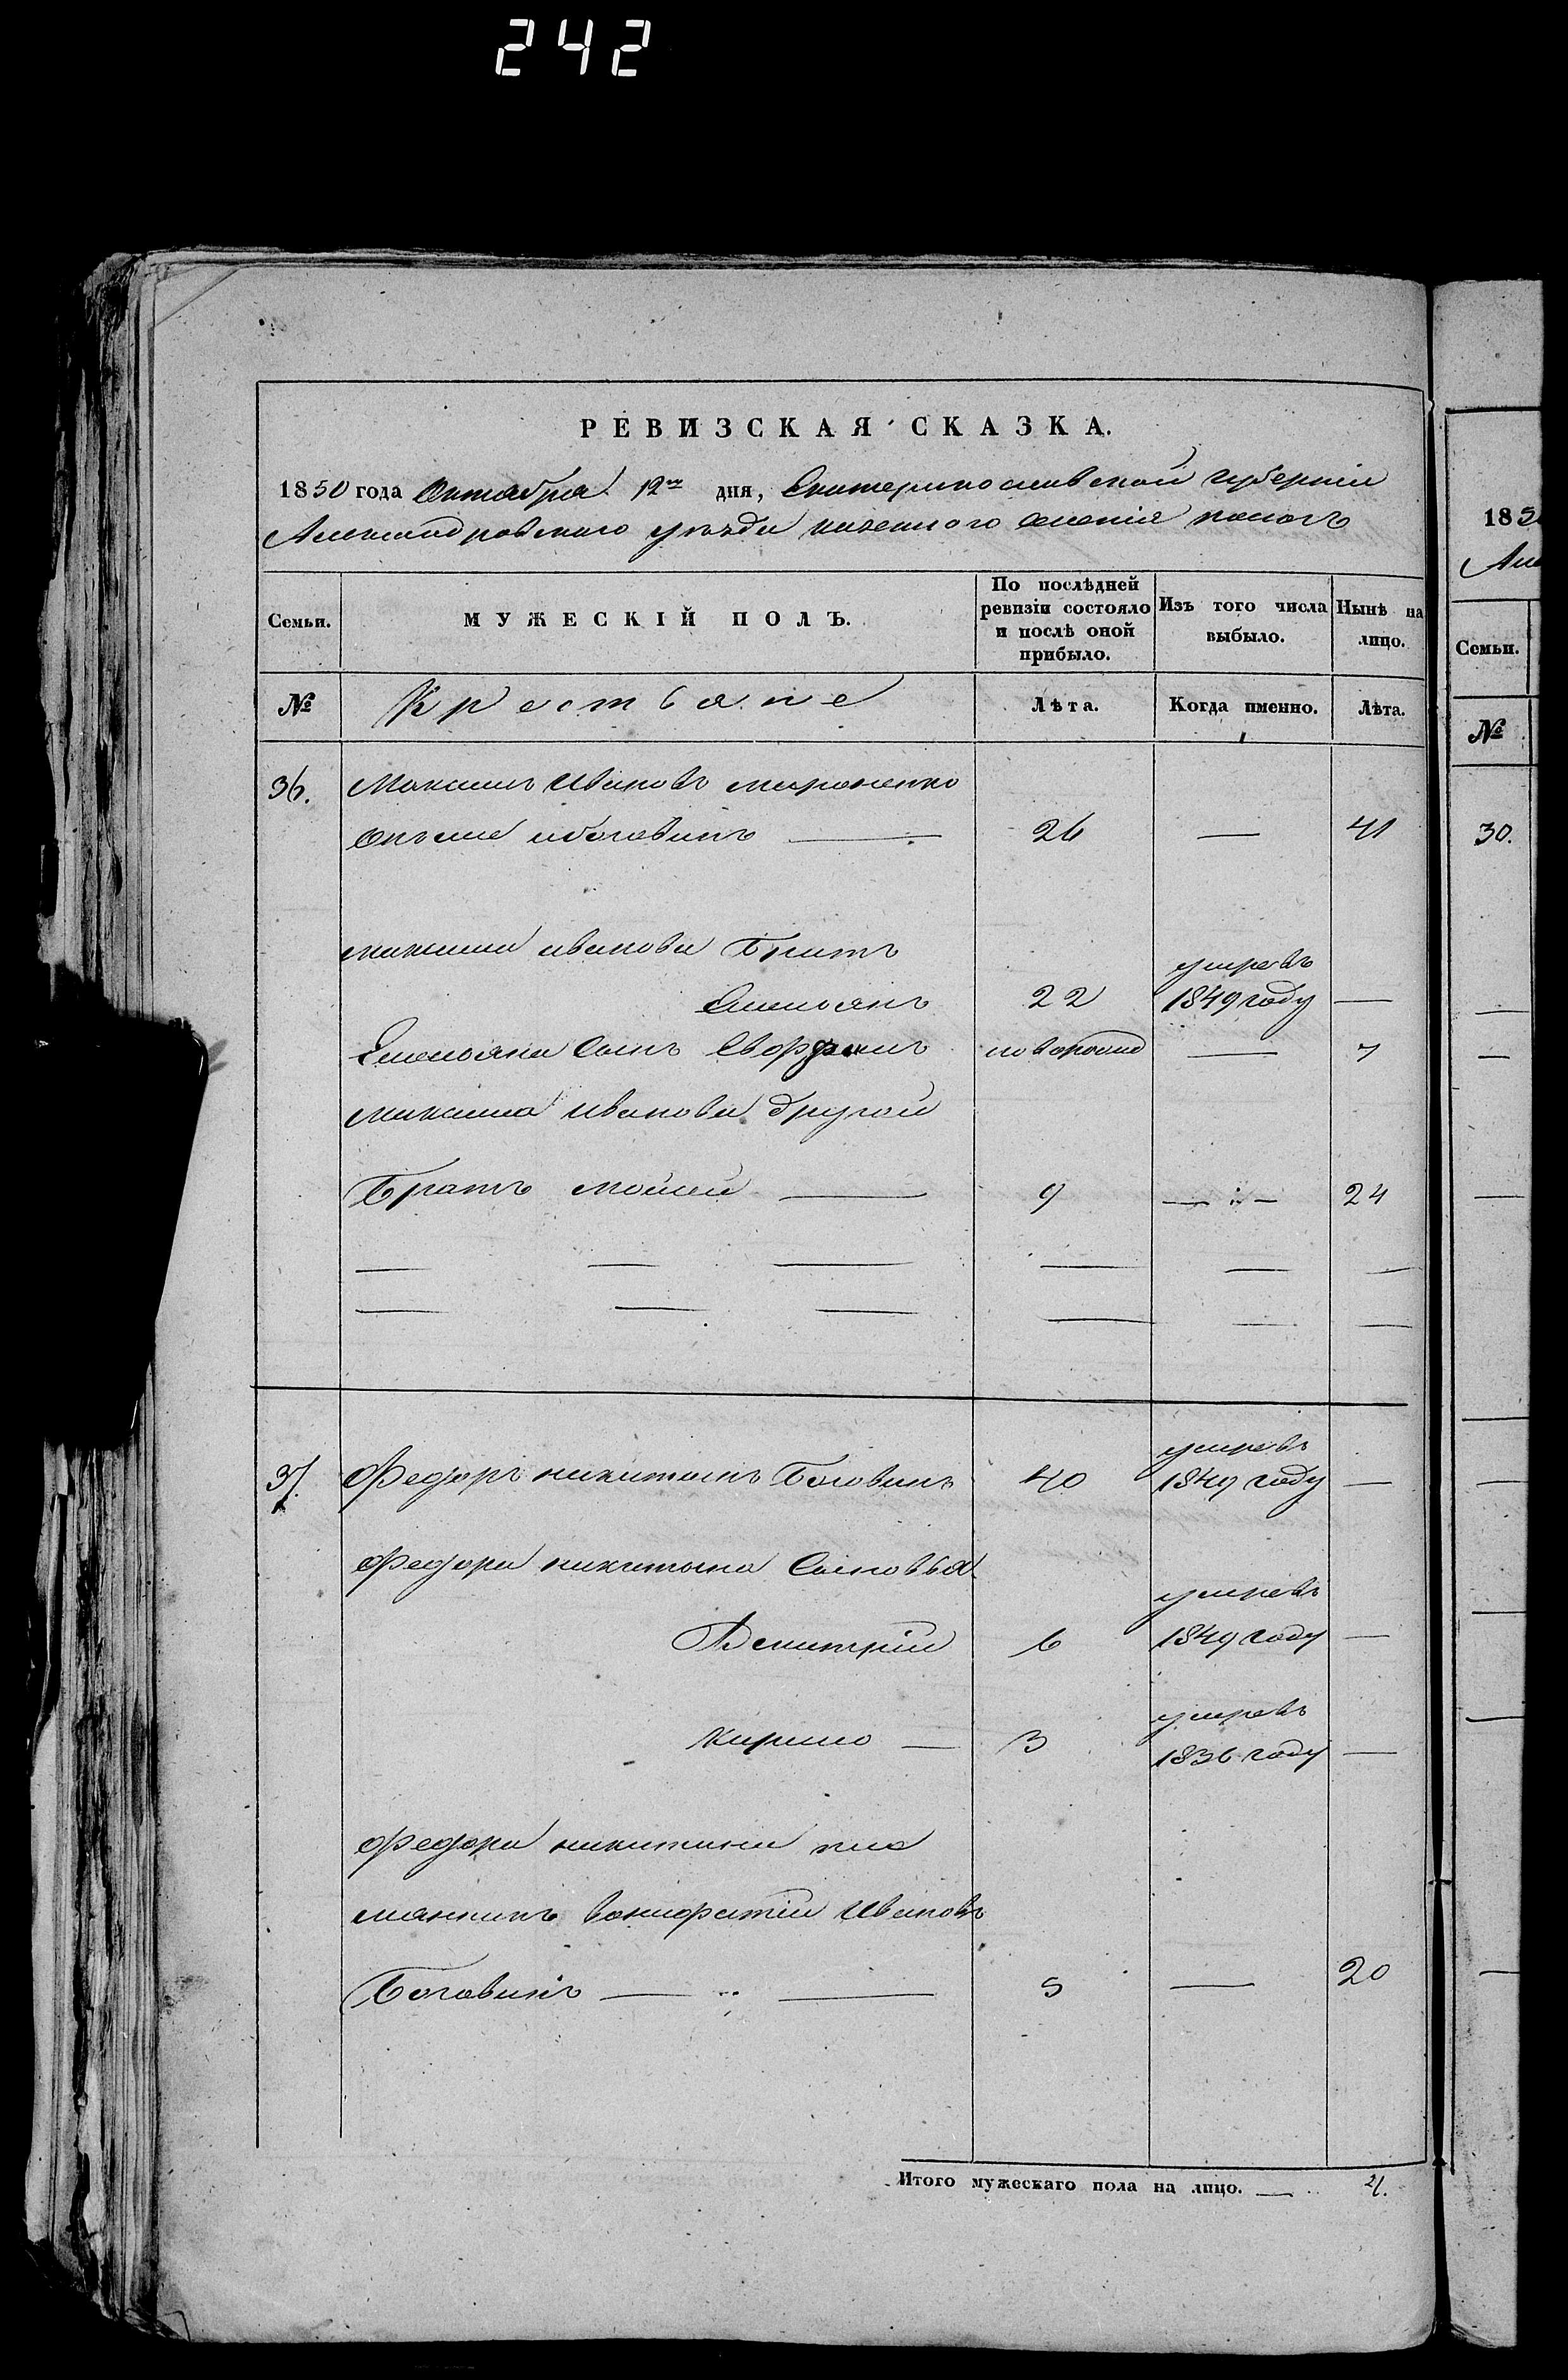 242
РЕВИЗСКАЯ СКАЗКА.
1850 года Октября 12го дня, Екатеринославской губернии
Александровского уезда казенного селения
Семьи.
МУЖЕСКІЙ ПОЛЪ.
По послѣдней ревизіи состояло и послѣ оной прибыло.
Изъ того числа выбыло.
Нынѣ на лицо.
№
Крестьяне
Лѣта.
Когда именно.
Лѣта.
36. Максимъ Ивановъ Мироненко
онъ же 26 — 41
максима иванова Братъ
Емельянъ 22 умре въ 1849 году —
Емельяна Сынъ новорожд — 7
максима иванова другой
Братъ моисей — 9 — 24
37. Федоръ никитинъ Боговинъ 40 умре въ 1849 году —
Федора никитина Сыновья
Демитрий 6 умре въ 1849 году —
Кирило — 3 умре въ 1836 году —
Федора никитина пле
мянникъ Ивановъ
Боговинъ — 5 — 20
Итого мужескаго пола на лицо. — 4.
185
Але
Семьи.
№
30.